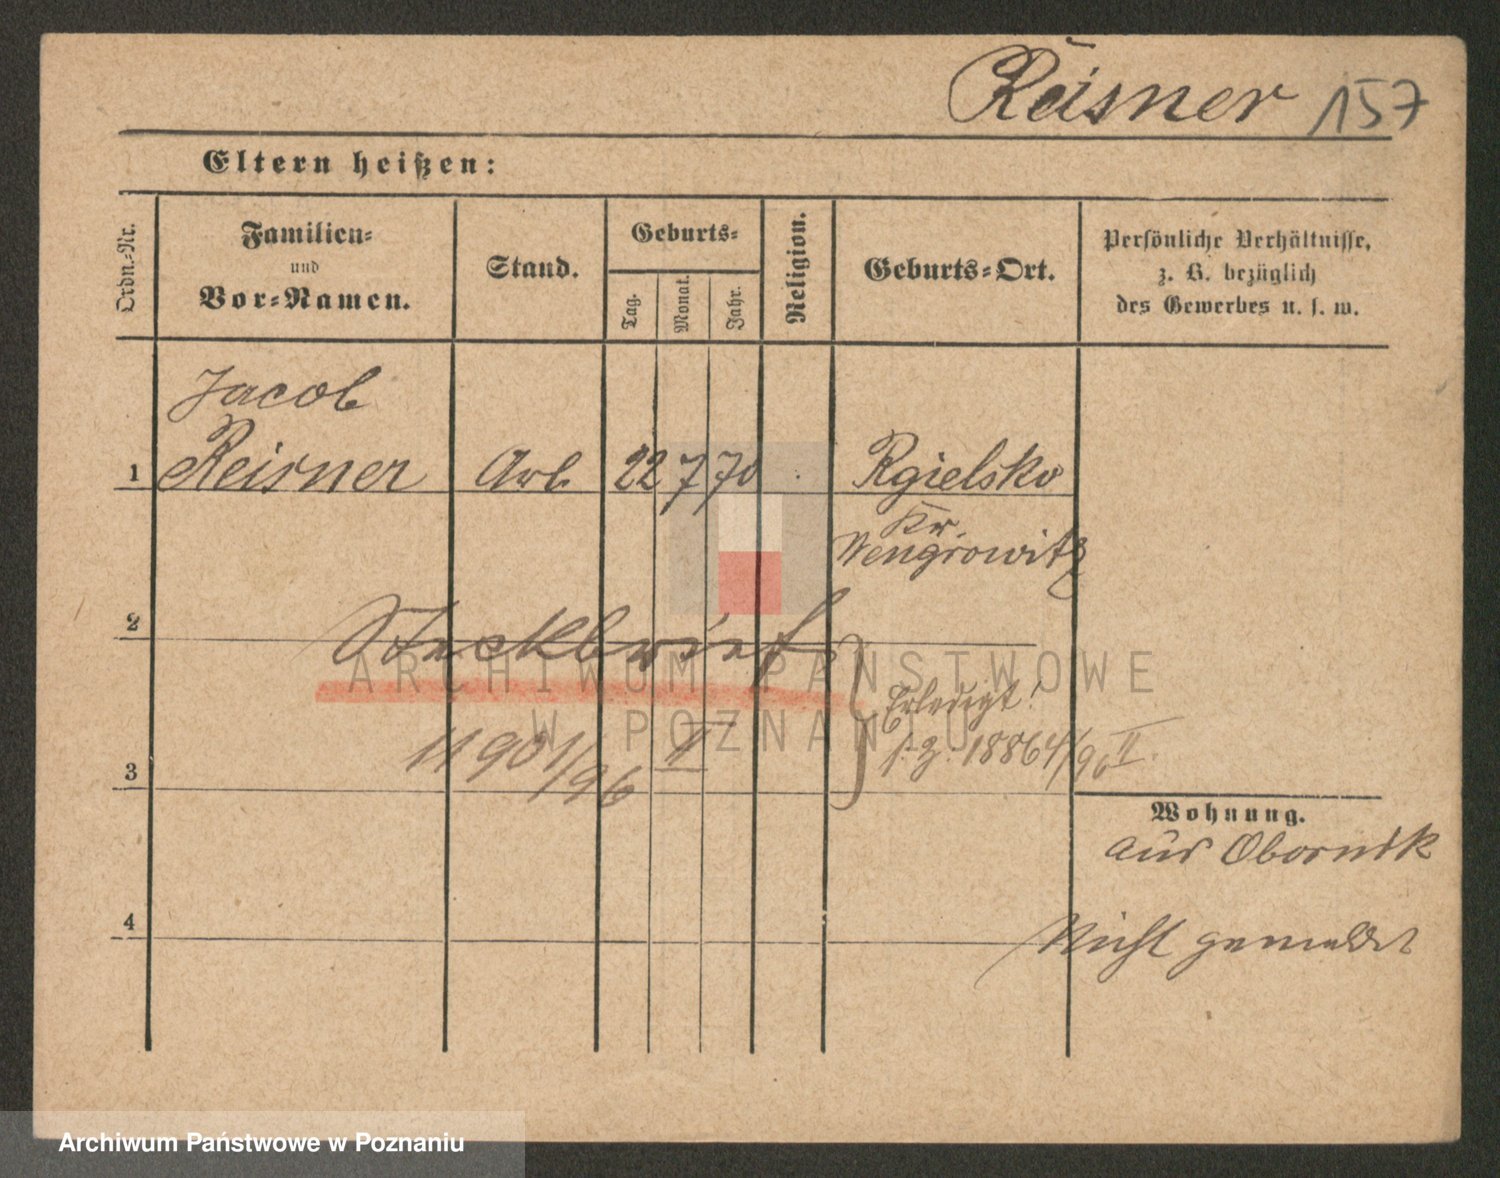 Reisner 157
Eltern heißen:
Ordn.-Nr.
Familien-
und
Vor-Namen.
Stand.
Geburts-
Tag.
Monat.
Jahr.
Religion.
Geburts-Ort.
Persönliche Verhältnisse,
z. B. bezüglich
des Gewerbes u. s. w.
Jacob
1 Reisner Arb 22 7 70 Rgielsko
Kr.
Wengrowitz
2
Steckbrief
ARCHIWUM PAŃSTWOWE
W POZNANIU
Erledigt!
11901/96 II
18864/96 II.
3
Wohnung.
aus Obornik
4
Nicht gemeldet
Archiwum Państwowe w Poznaniu